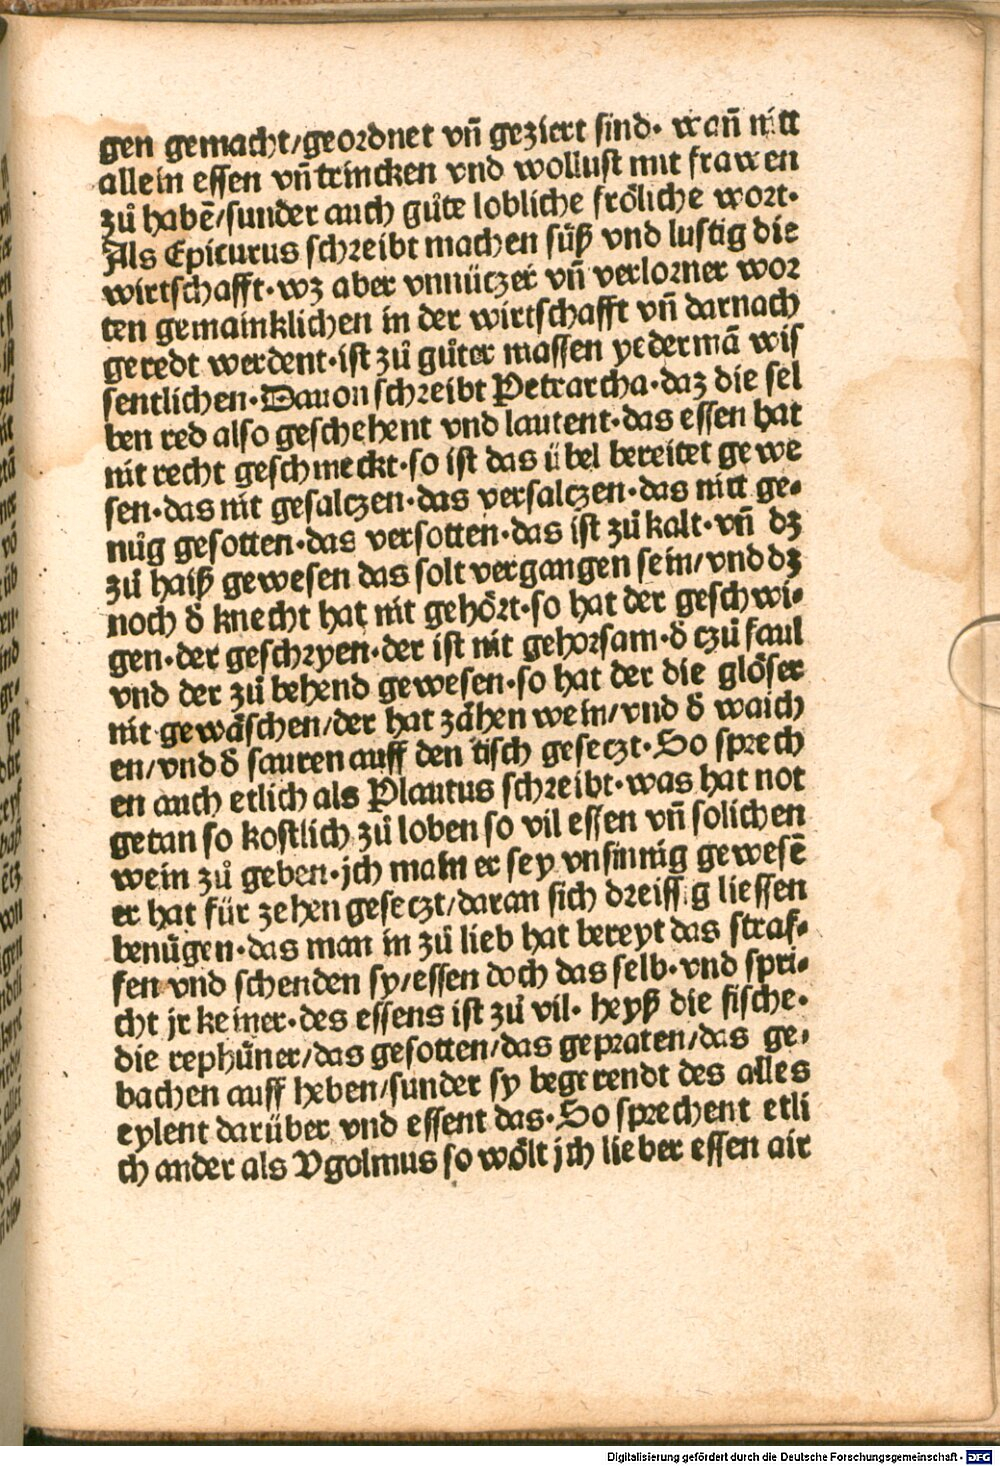 gen gemacht/geordnet vn̄ geziert sind· wan̄ nitt
allein essen vn̄ trincken vnd wollust mit frawen
zů habē/sunder auch gůte lobliche fröliche wort·
Als Epicurus schreibt machen süß vnd lustig die
wirtschafft·wz aber vnnüczer vn̄ verlorner wor
ten gemainklichen in der wirtschafft vn̄ darnach
geredt werdent·ist zů gůter massen yedermā wis
sentlichen·Dauon schreibt Petrarcha·daz die sel
ben red also geschehent vnd lautent·das essen hat
nit recht geschmeckt·so ist das übel bereitet gewe
sen·das nit gesalczen·das versalczen·das nitt ge⸗
nůg gesotten·das versotten·das ist zů kalt·vn̄ dz
zů haiß gewesen das solt vergangen sein/vnd dz
noch d̄ knecht hat nit gehört·so hat der geschwi⸗
gen·der geschryen·der ist nit gehorsam·d̄ czů faul
vnd der zů behend gewesen·so hat der die glöser
nit gewäschen/der hat zähen wein/vnd d̄ waich
en/vnd d̄ sauren auff den tisch gesetzt·So sprech
en auch etlich als Plautus schreibt·was hat not
getan so kostlich zů loben so vil essen vn̄ solichen
wein zů geben·jch main er sey vnsinnig gewesē
er hat für zehen gesetzt/daran sich dreissig liessen
benügen·das man in zů lieb hat bereyt das straf⸗
fen vnd schenden sy/essen doch das selb·vnd spri⸗
cht jr keiner·des essens ist zů vil· heyß die fische·
die rephüner/das gesotten/das gepraten/das ge⸗
bachen auff heben/sunder sy begerendt des alles
eylent darüber vnd essent das·So sprechent etli
ch ander als Vgolinus so wölt jch lieber essen air
Digitalisierung gefördert durch die Deutsche Forschungsgemeinschaft - DFG